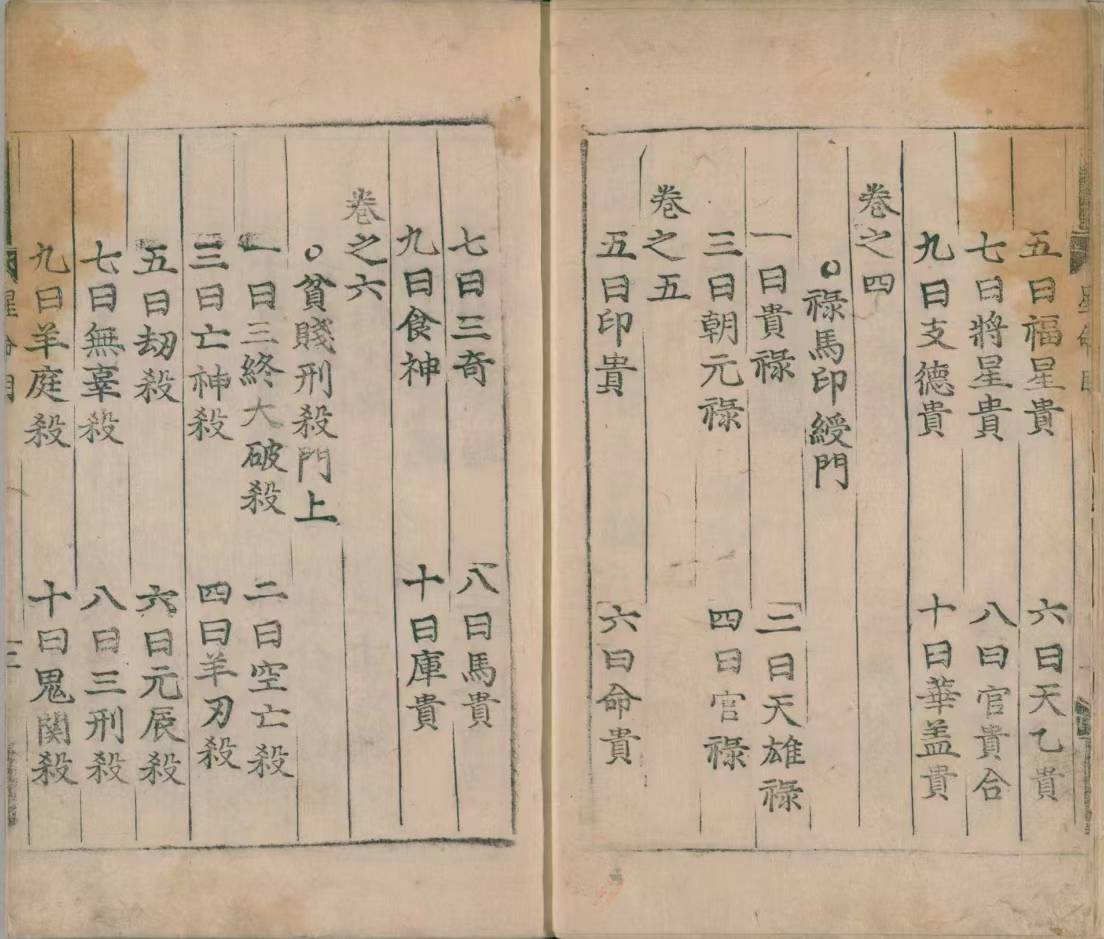 五曰福星貴 六曰天乙貴
七曰將星貴 八曰官貴合
九曰支德貴 十曰華盖貴
卷之四
○祿馬印綬門
一曰貴祿 二曰天雄祿
三曰朝元祿 四曰官祿
卷之五
五曰印貴 六曰命貴
七曰三奇 八曰馬貴
九曰食神 十曰庫貴
卷之六
○貧賤刑殺門上
一曰三終大破殺 二曰空亡殺
三曰亡神殺 四曰羊刃殺
五曰劫殺 六曰元辰殺
七曰無辜殺 八曰三刑殺
九曰羊庭殺 十曰鬼関殺